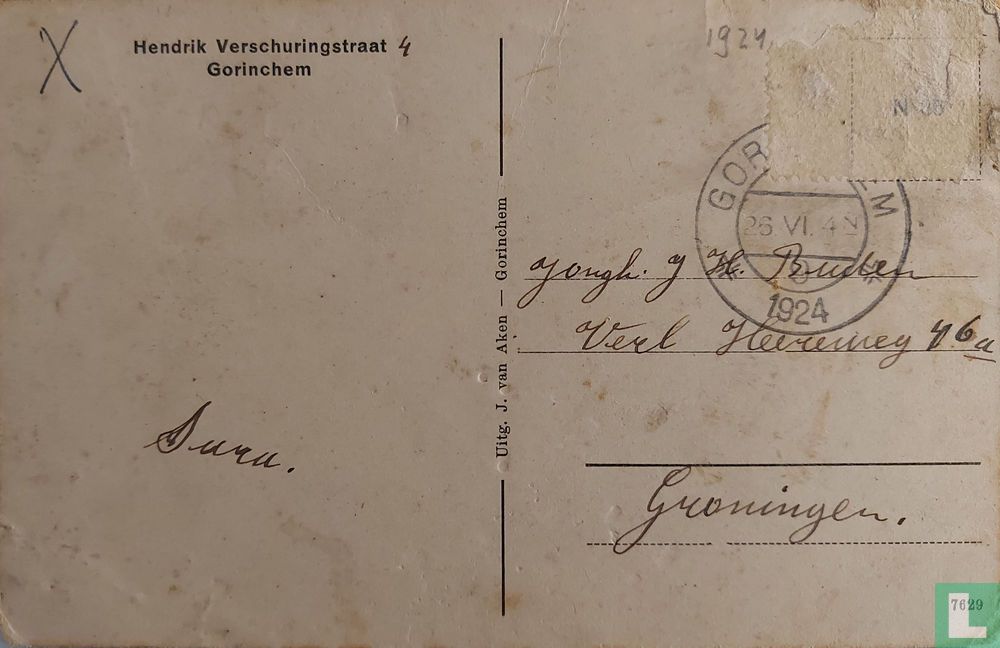 X
Hendrik Verschuringstraat 4
Gorinchem
1924
GOR EM
26 VI. 4 N
1924
Jongh. J H. Bulten
Verl Heereweg 46a
Groningen.
Sura.
Uitg. J. van Aken — Gorinchem
7629